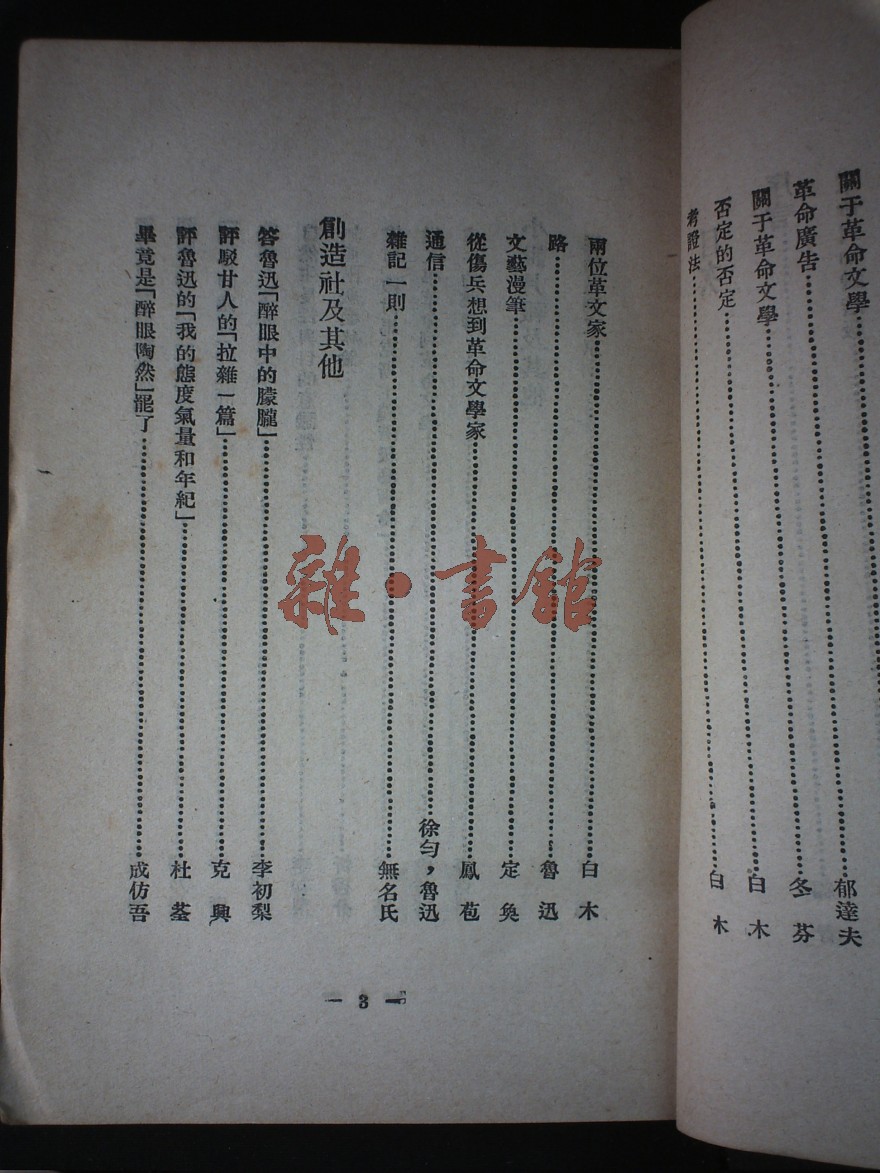 關于革命文學………郁達夫
革命廣告………冬芬
關于革命文學………白木
否定的否定
考證法………白木
兩位革文家………白木
路………魯迅
文藝漫筆………定奐
從傷兵想到革命文學家………鳳苞
通信………徐勻，魯迅
雜記一則………無名氏
創造社及其他
答魯迅「醉眼中的朦朧」………李初梨
評駁甘人的「拉雜一篇」………克興
評魯迅的「我的態度氣量和年紀」………杜荃
畢竟是「醉眼陶然」罷了………成仿吾
— 3 —
雜·書館